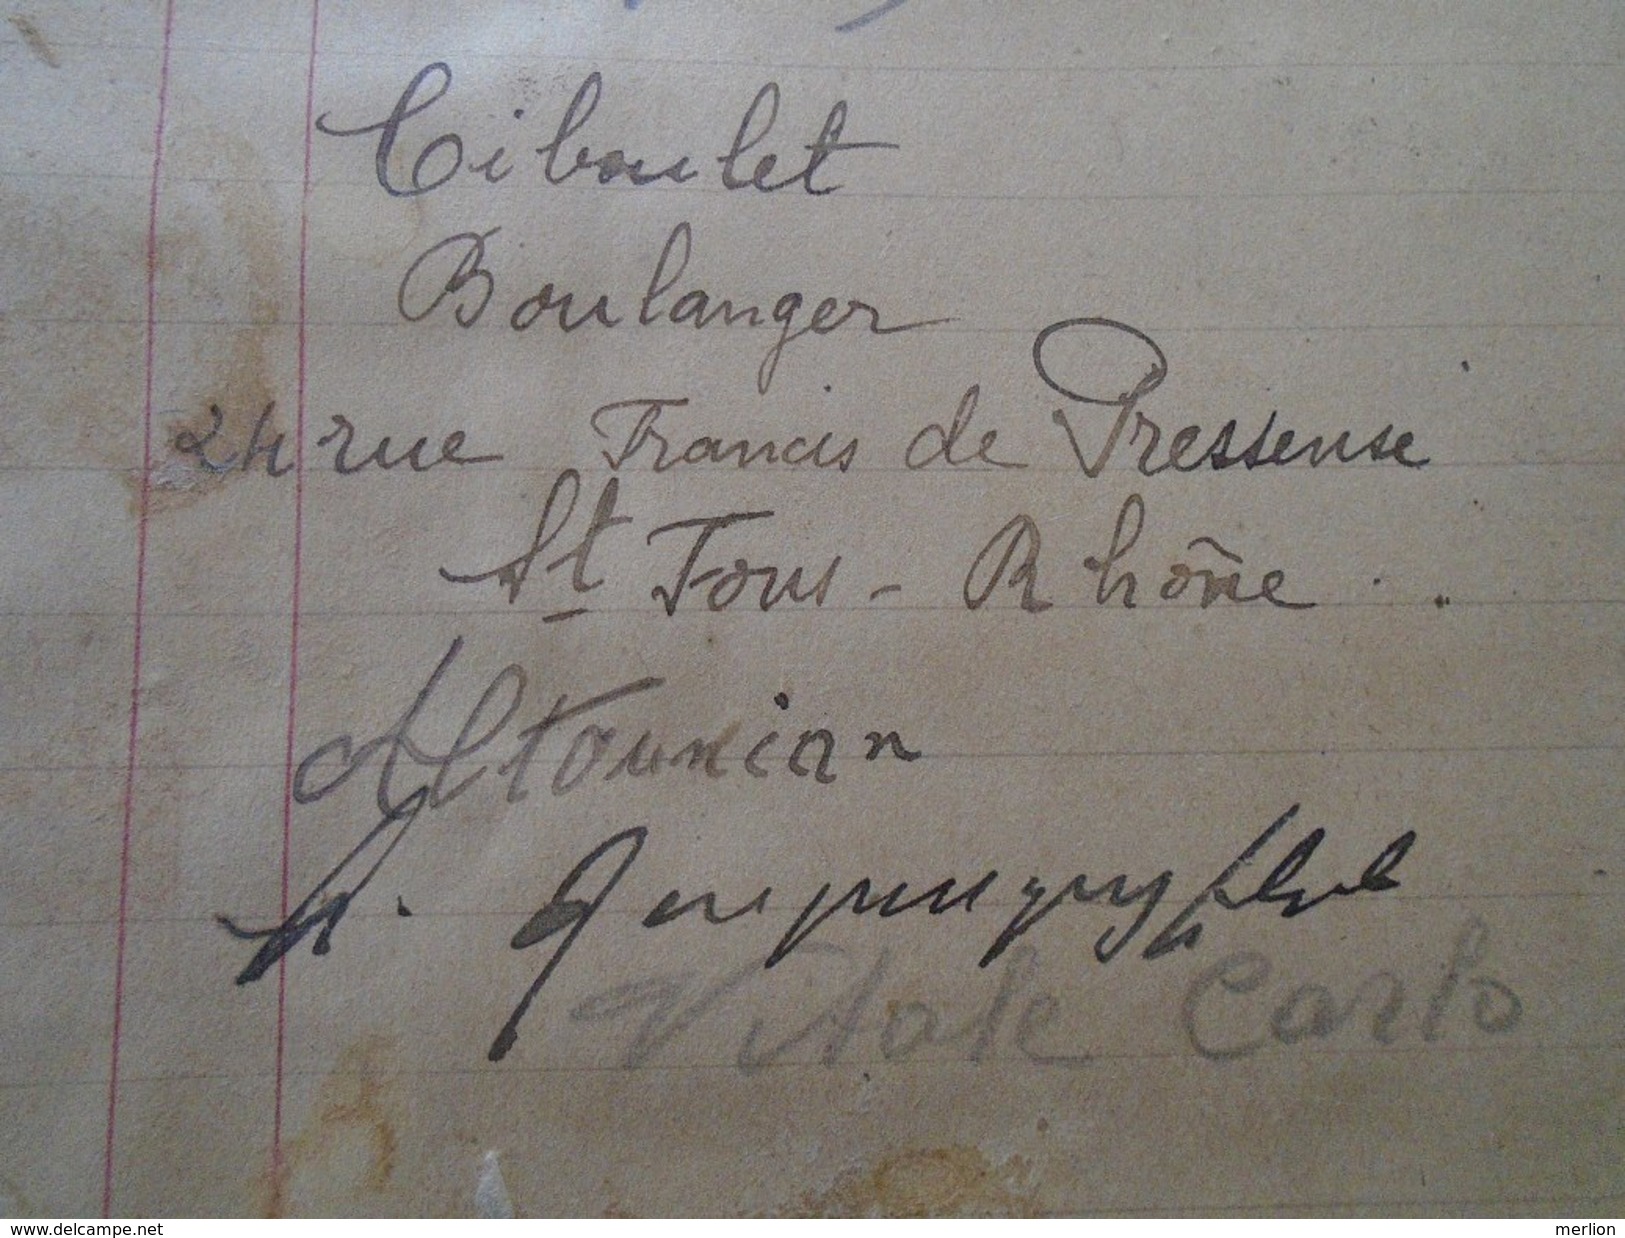 Ciboulet
Boulanger
24 rue Francis de Pressense
St Fons - Rhône.
Altounian
Vitale Carlo
www.delcampe.net
merlion